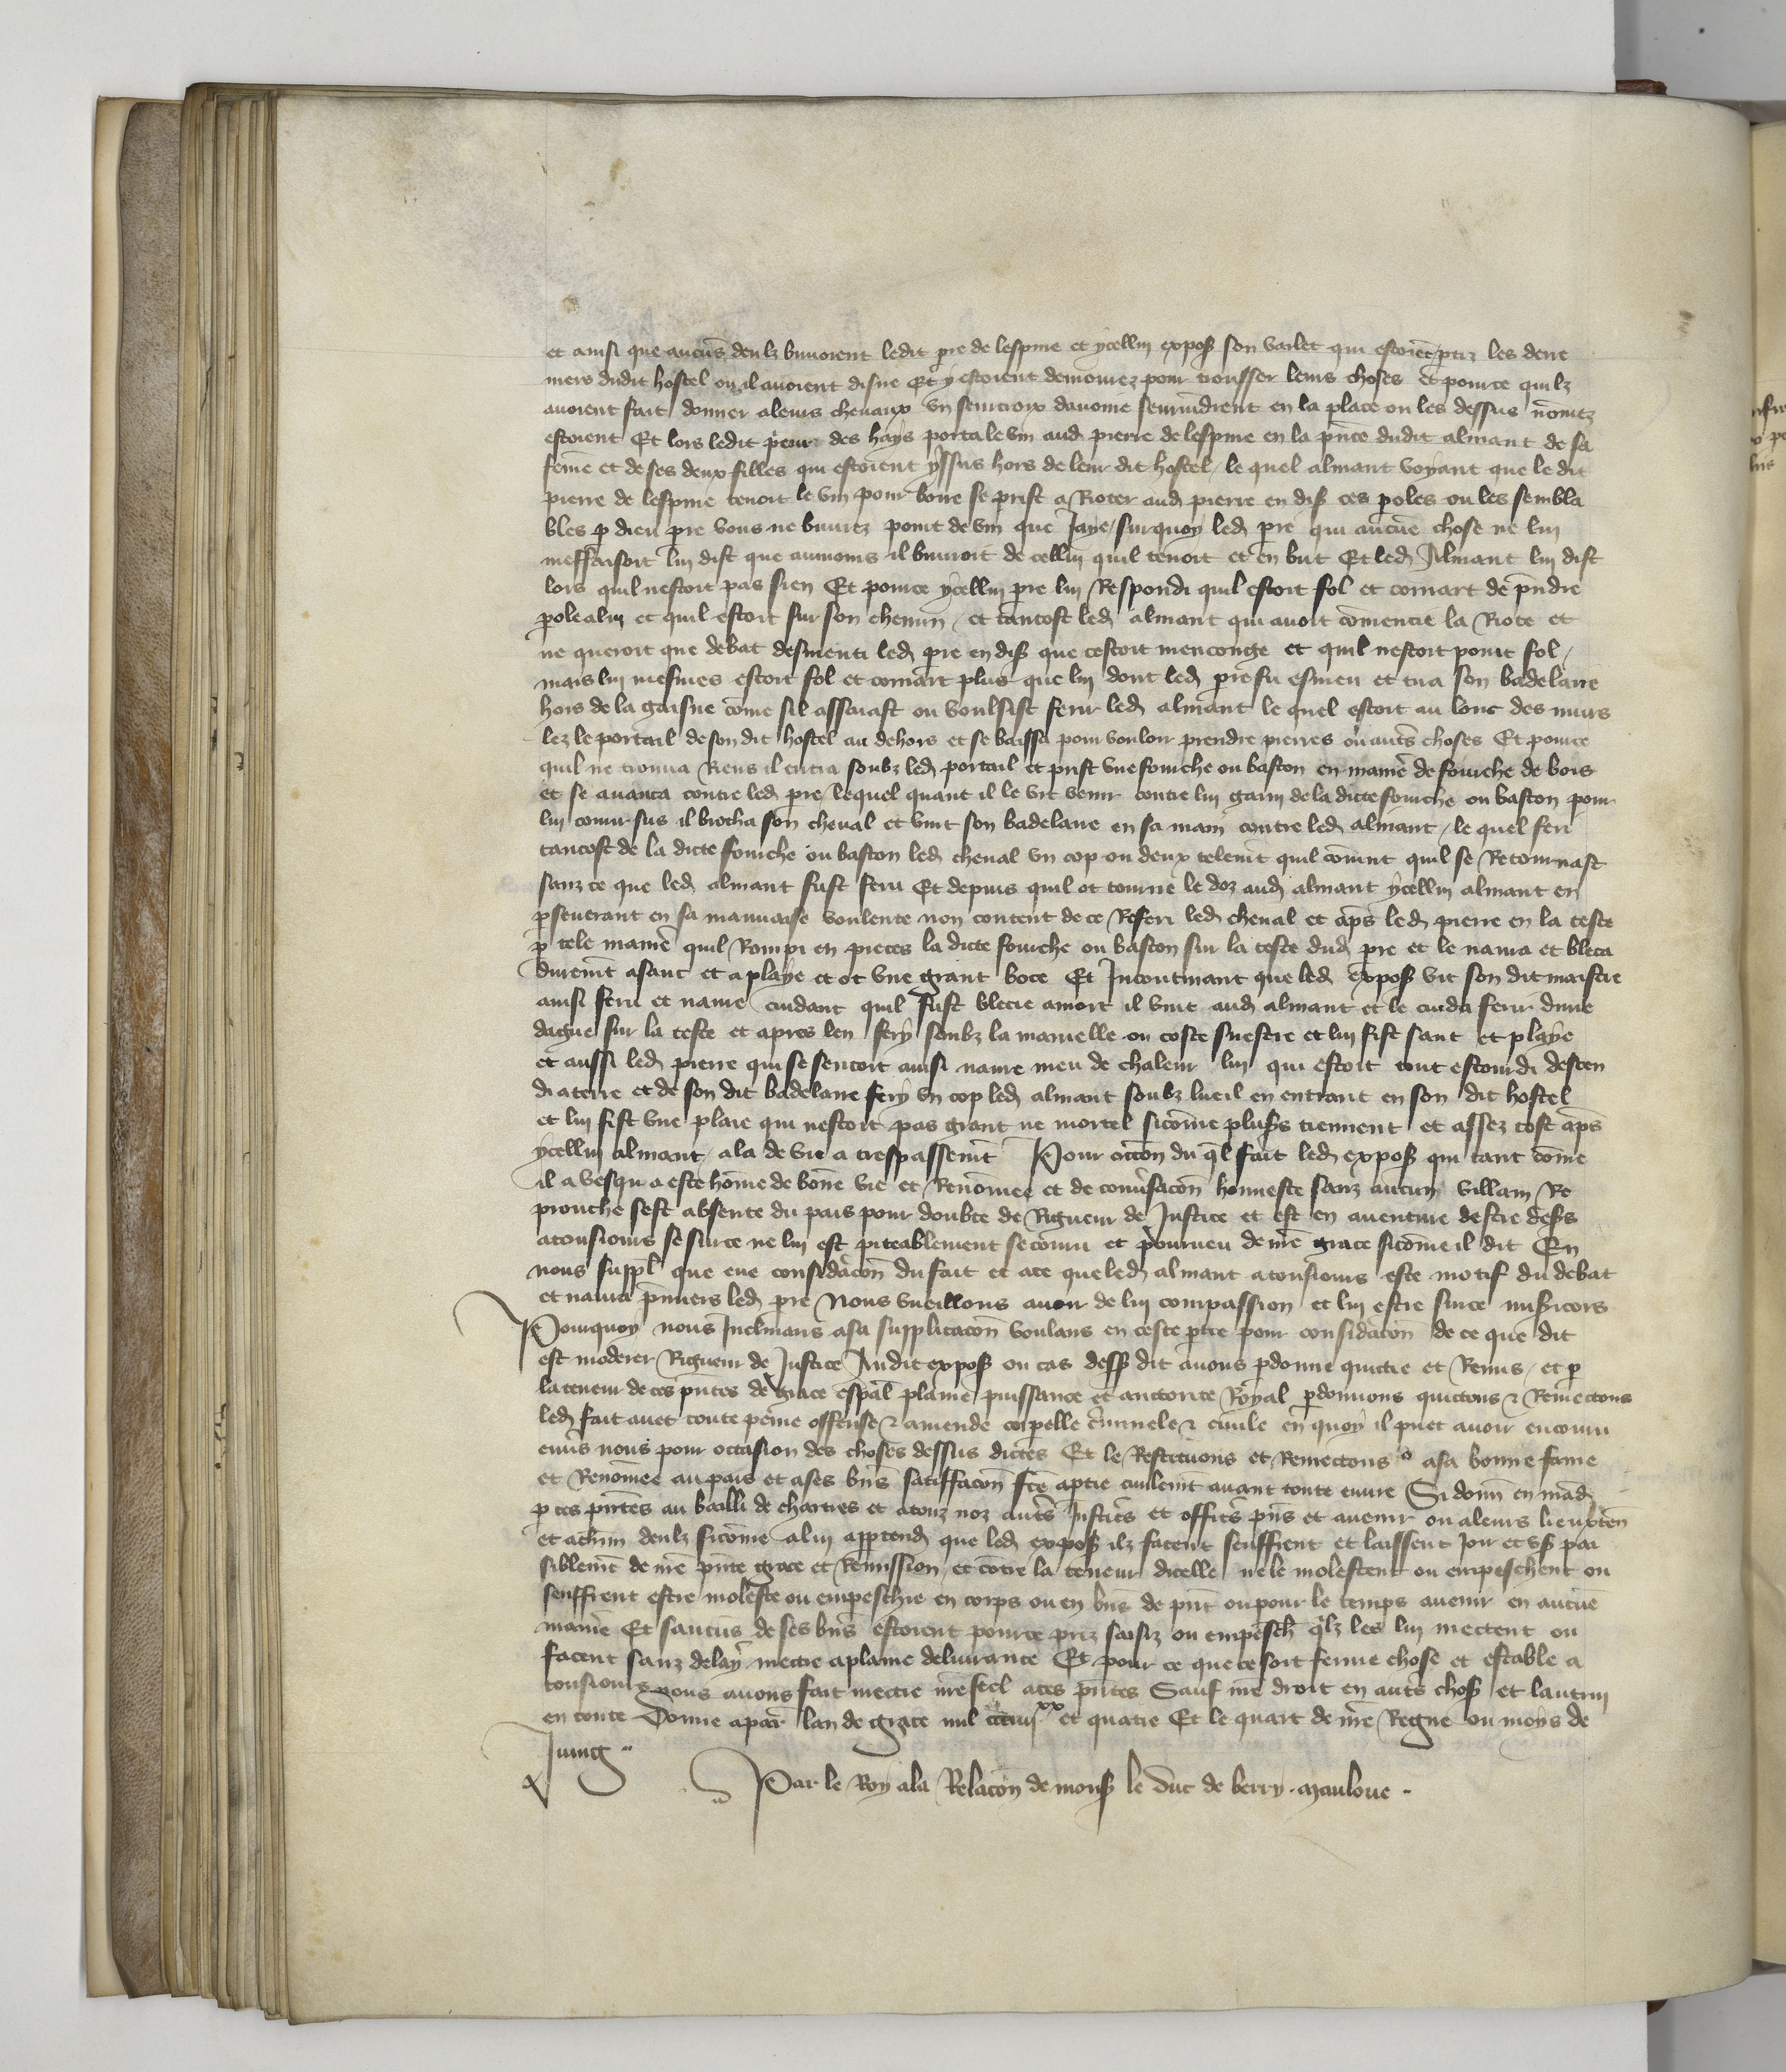 et ainsi que aucũs deulz buuoient ledit pre de lespine et ycellui expoß son varlet qui estoiẽt ptiz les derre
niers dudit hostel ou il auoient disne Et y estoient demourez pour trousser leurs choses et pource quilz
auoient fait donner aleurs cheuaux vn seurcroix dauoine seurundrent en la place ou les dessus nõmez
estoient Et lors ledit des hays porta le vin aud pierre de lespine en la pñce dudit almant de sa
feme et de ses deux filles qui estoient yssus hors de leur dit hostel / le quel almant voyant que le dit
pierre de lespine tenoit le vin pour boire se prist a Rioter aud pierre en diß ces poles ou les sembla
bles p dieu pre vous ne buurez point de vin que Jaye / sur quoy led pre qui aucune chose ne lui
meffaisoit lui dist que aumoins il buuroit de cellui quil tenoit et en but Et led Almant lui dist
lors quil nestoit pas sien Et pource ycellui pre lui Respondi quil estoit fol et cornart de pñdre
pole a lui et quil estoit sur son chemin / et tantost led almant qui auoit cõmencie la Riote et
ne queroit que debat desmenti led pre en diß que cestoit menconge et quil nestoit point fol /
mais lui mesmes estoit fol et cornart plus que lui dont led pre fu esmeu et tira son badelaire
hors de la gaisne cõme sil assaiast ou voulsist ferir led almant le quel estoit au lonc des murs
lez le portail de son dit hostel au dehors et se baissa pour vouloir prendre pierres ou autˢ choses Et pource
quil ne trouua Riens il entra soubz led portail et prist vne fourche ou baston en manie de fourche de bois
et se auanca contre led pre lequel quant il le vit venir contre lui garni de la dicte fourche ou baston pour
lui courir sus il brocha son cheual et vint son badelaire en sa main contre led almant / le quel feri
tantost de la dicte fourche ou baston led cheual vn cop ou deux telemt quil cõuint quil se Retournast
sanz ce que led almant fust feru Et depuis quil ot tourne le doz aud almant ycellui almant en
pseuerant en sa mauuaise voulente non content de ce Referi led cheual et aps led pierre en la teste
p tele manie quil Rompi en pieces la dicte fourche ou baston sur la teste dud pre et le naura et bleca
duremt a sanc et a playe et ot vne grant boce Et Incontinant que led expoß vit son dit maistre
ainsi feru et naure cuidant quil fust blecie amort il vint aud almant et le cuida ferir dune
dague sur la teste et apres len fery soubz la mamelle ou coste senestre et lui fist sanc et playe
et aussi led pierre qui se sentoit ainsi naure meu de chaleur lui qui estoit tout estourdi descen
di a terre et de son dit badelaire fery vn cop led almant soubz lueil en entrant en son dit hostel
et lui fist vne plaie qui nestoit pas grant ne mortel sicõme plusˢ tiennent et assez tost aps
ycellui almant / ala de vie a trespassemt Pour occõn du ql fait led expoß qui tant cõme
il a vesqu a este hõme de bõne vie et Renõmee et de conusacõn honneste sanz aucun villain Re
prouche sest absente du pais pour doubte de Rigueur de Justice et est en auenture destre desˢ
atousiours se sur ce ne lui est piteablement secouru et pourueu de nre grace sicõme il dit En
nous suppl que eue considacõn du fait et ace que led almant atousiours este motif du debat
et naura pmiers led pre Nous vueillons auoir de lui compassion et lui estre sur ce miẞicors
Pourquoy nous Inclinans a sa supplicacõn voulans en ceste ptie pour considacõn de ce que dit
est moderer Rigueur de Justice Audit expoß ou cas desß dit auons pdonne quictie et Remis / et p
la teneur de ces pñtes de grace espal plaine puissance et auctorite Royal pdonnons quictons & Remectons
led fait auec toute peine offense & amende corpelle criminele & ciuile en quoy il puet auoir encouru
enuˢ nous pour occasion des choses dessus dictes Et le Restituons et Remectons a sa bonne fame
et Renõmee au pais et a ses bnˢ satiffacõn fce aptie ciuilemt auant toute euure Si donn en mad
p ces pñtes au bailli de chartres et atouz noz autˢ Justicˢ et officˢ pns et auenir ou aleurs lieuxten
et achun deulz sicõme alui apptend que led expoß ilz facent seuffrent et laissent Joir et vß pai
siblemt de nre pñte grace et Remission / et cõtre la teneur dicelle ne le molestent ou empeschent ou
seuffrent estre moleste ou empeschie en corps ou en bnˢ de pñt ou pour le temps auenir en aucune
manie Et saucuns de ses bnˢ estoient pource priz saisiz ou empesch qlz les lui mectent ou
facent sanz delay mectre aplaine deliurance Et pour ce que ce soit ferme chose et estable a
tousiours nous auons fait mectre nre seel a ces pñtes Sauf nre droit en autˢ choß et lautrui
en toute Donne apaˢ lan de grace mil ccciiijˣˣ et quatre Et le quart de nre Regne ou moys de
Juing
Par le Roy ala Relacõn de monß le duc de berry . Mauloue .